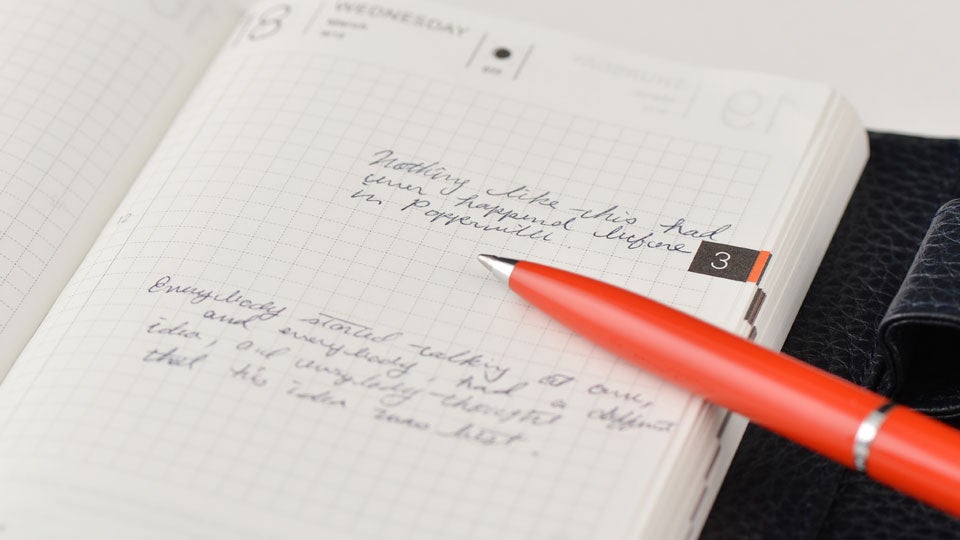 WEDNESDAY
March
Nothing like this had
ever happend before
in Popperville.
3
12
Everybody started talking at once,
and everybody had a different
idea, and everybody thought
that his idea was best.